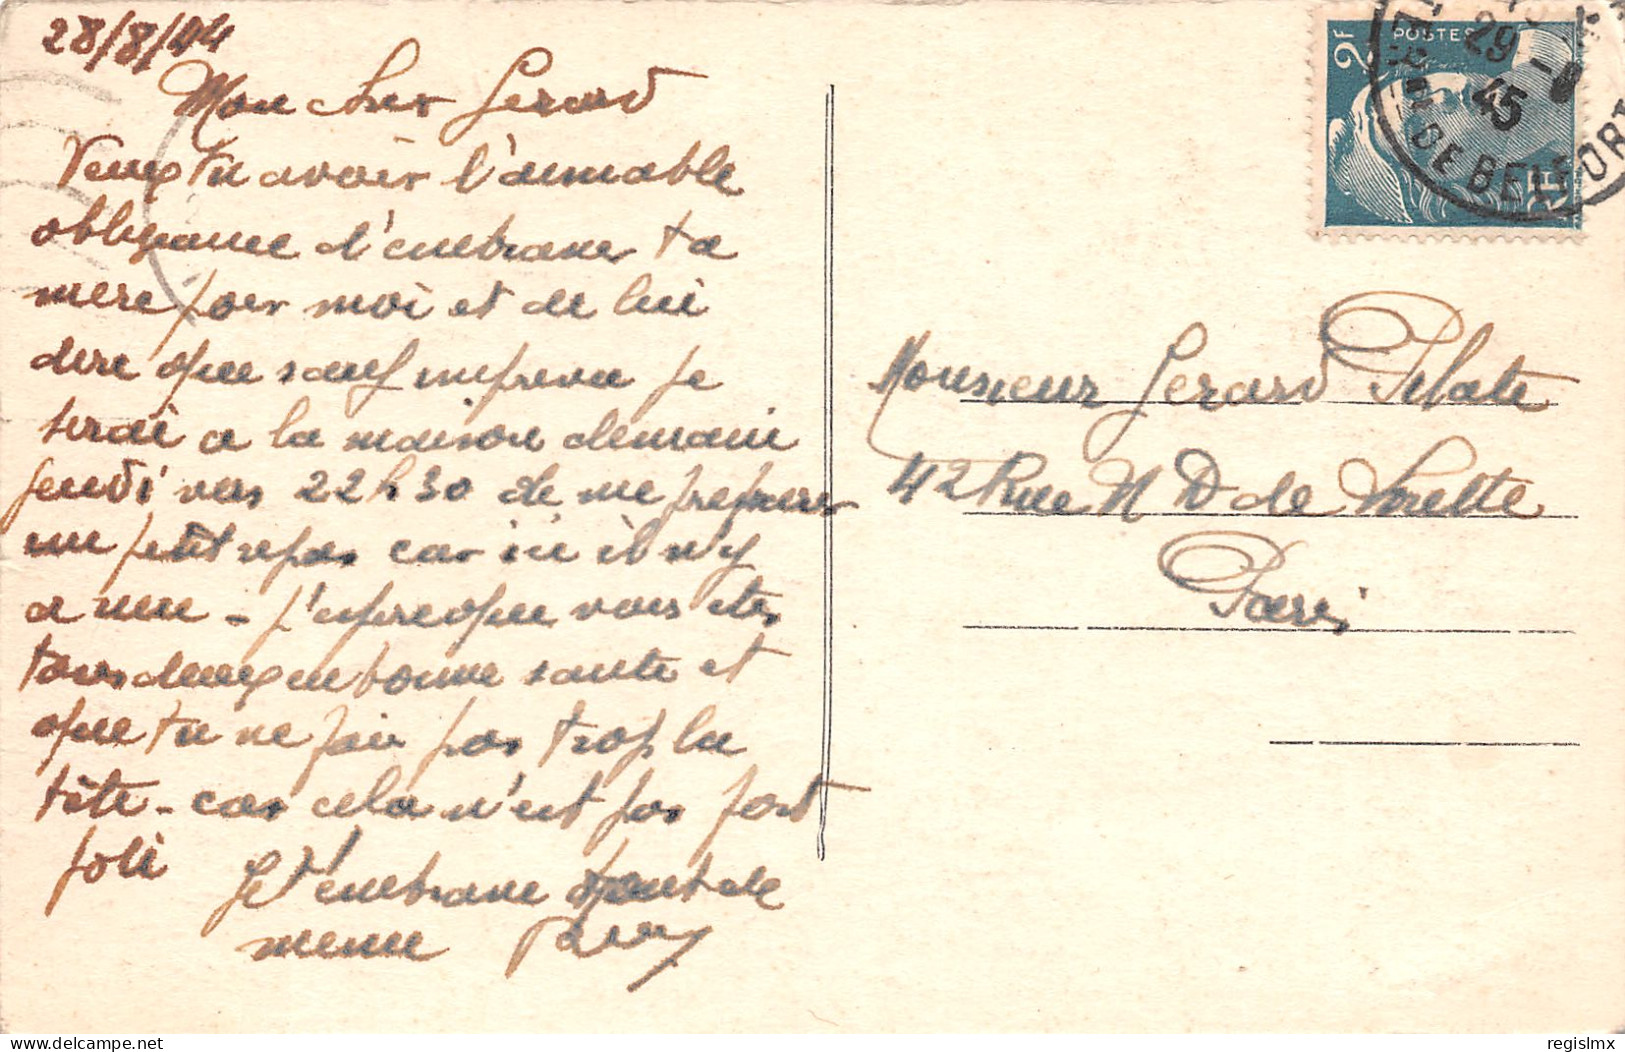 28/8/44
Mon cher Gerard
Veux tu avoir l'aimable
obligeance d'embrasser ta
mere pour moi et de lui
dire que sauf imprevu je
serai a la maison demain
jeudi vers 22h30 de me preparer
un petit repas car ici il n'y
a rien - J'espere que vous etes
tous deux en bonne sante et
que tu ne fais pas trop la
tête - car cela n'est pas fort
joli
Je t'embrasse tout de
meme
Monsieur Gerard Pilate
42 Rue N D de Lorette
Paris
2F POSTES
RF
29 - 8
45
DE BELFORT
delcampe.net
regislmx